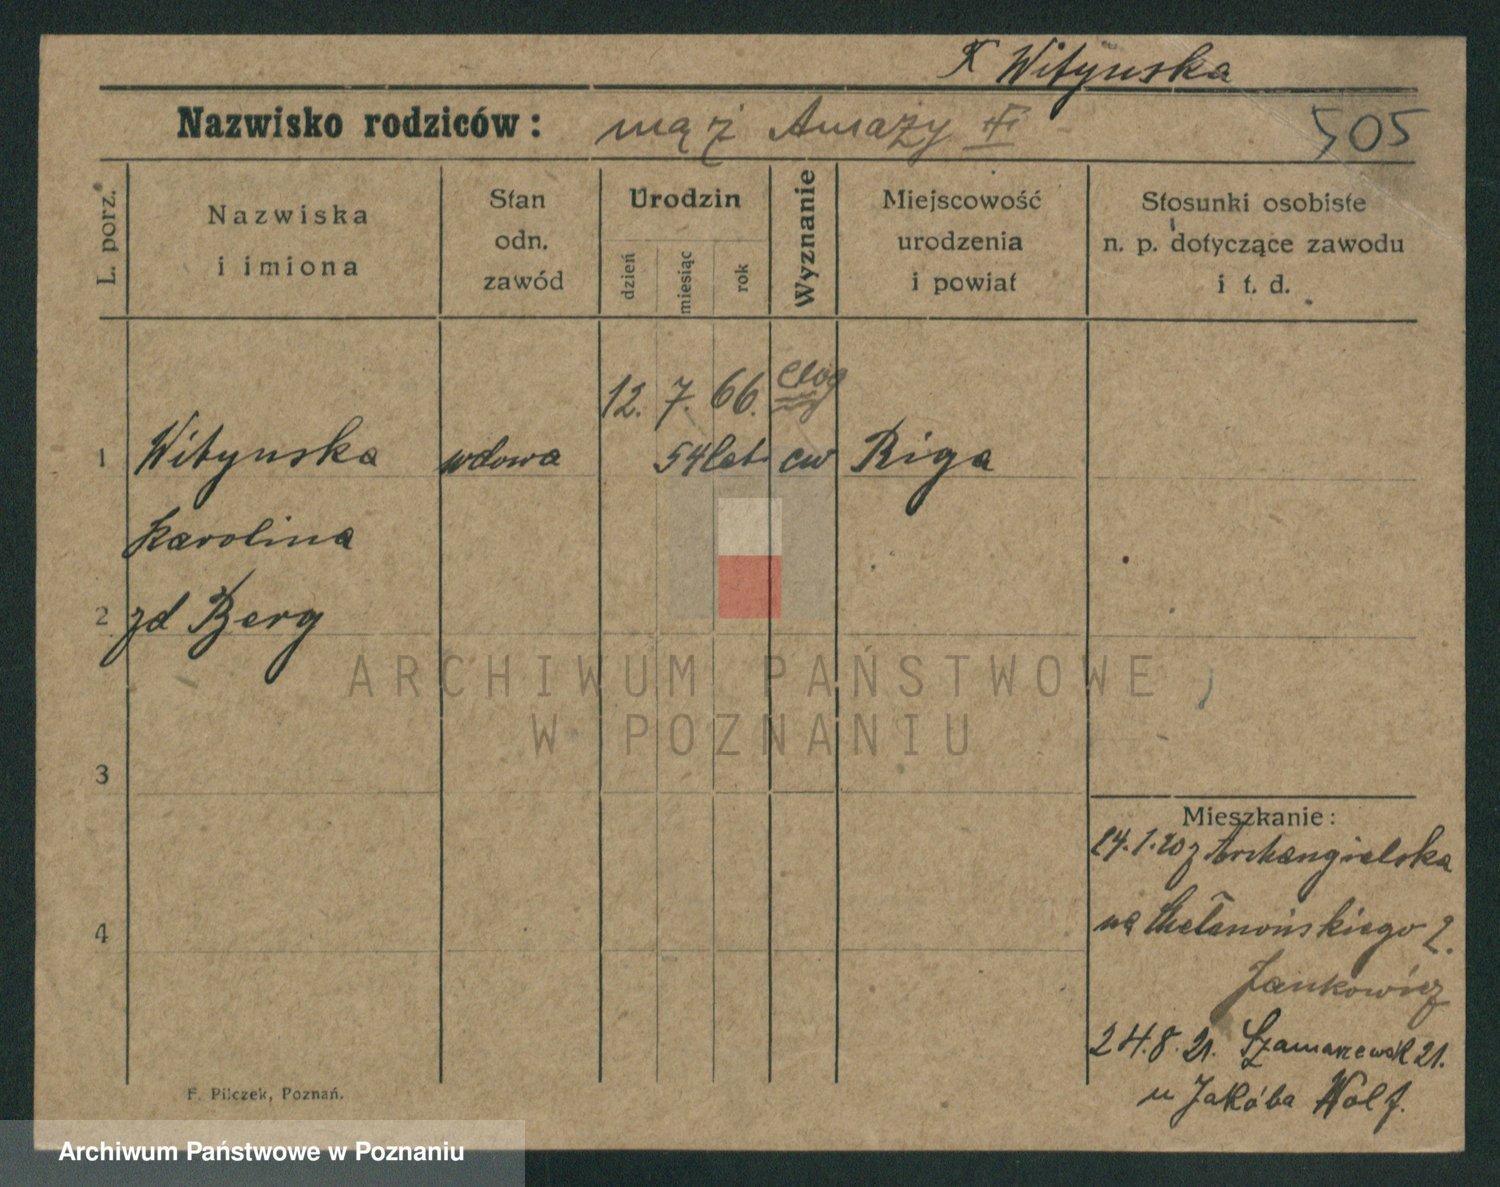 K Witynska
Nazwisko rodziców: mąż Amazy III
505
L. porz.
Nazwiska
i imiona
Stan
odn.
zawód
Urodzin
dzień
miesiąc
rok
Wyznanie
Miejscowość
urodzenia
i powiat
Stosunki osobiste
n. p. dotyczące zawodu
i t. d.
12. 7. 66.
1 Witynska wdowa 54 lat ew Riga
Karolina
2 zd Berg
ARCHIWUM PAŃSTWOWE
W POZNANIU
3
4
Mieszkanie:
z Archangielska
na 2.
Jankowicz
24.8.21. 21.
u Jakóba Wolf.
F. Pilczek, Poznań.
Archiwum Państwowe w Poznaniu